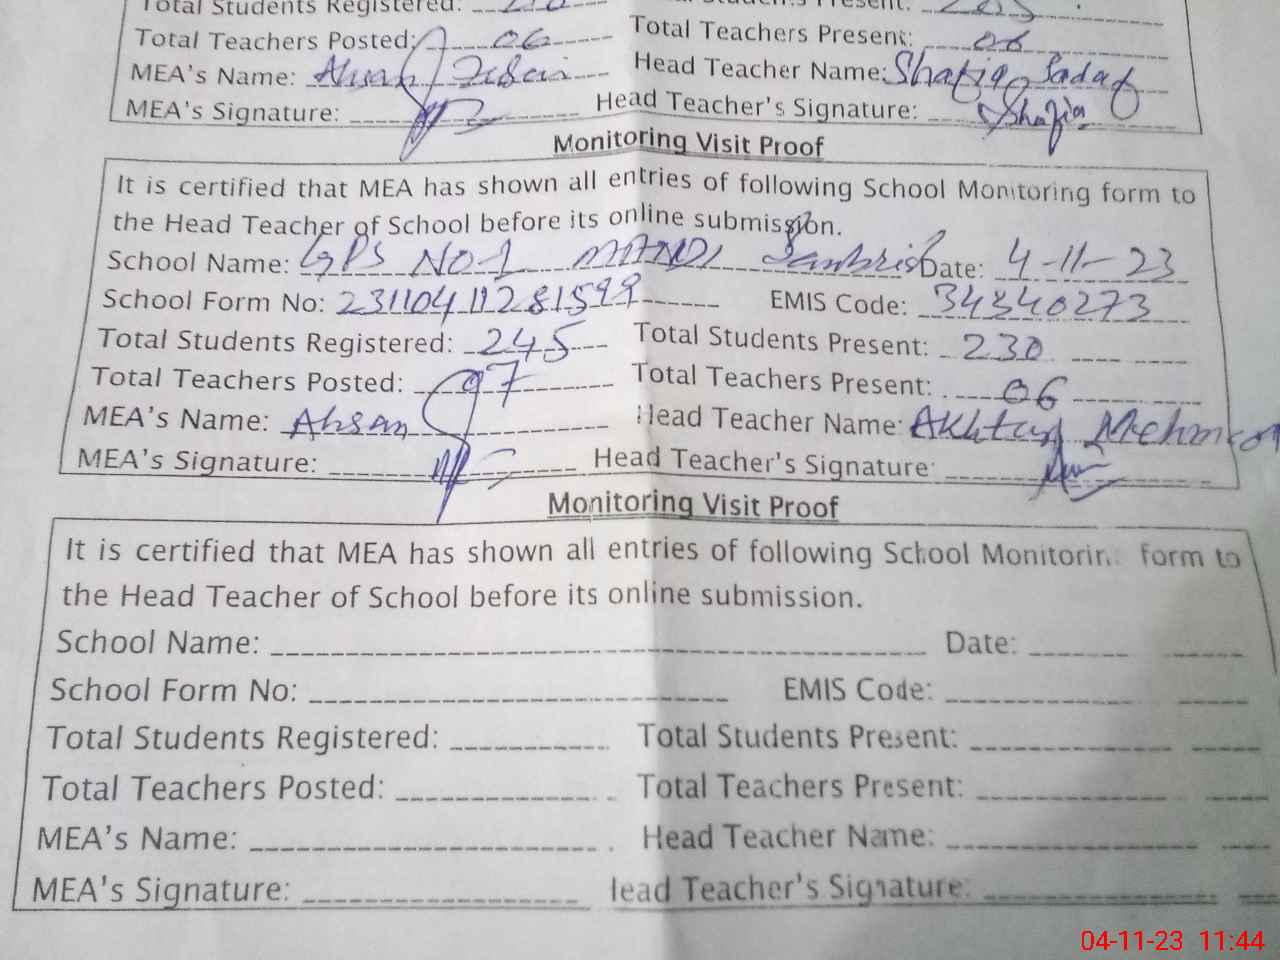 Total Students Registered: Total Students Present:
Total Teachers Posted: 06 Total Teachers Present: 06
MEA's Name: Ahsan Head Teacher Name: Shafiq Sadaf
MEA's Signature: Head Teacher's Signature: Shafiq
Monitoring Visit Proof
It is certified that MEA has shown all entries of following School Monitoring form to
the Head Teacher of School before its online submission.
School Name: GPS NO-1 MANDI Date: 4-11-23
School Form No: 23110411281599 EMIS Code: 34340273
Total Students Registered: 245 Total Students Present: 230
Total Teachers Posted: 07 Total Teachers Present: 06
MEA's Name: Ahsan Head Teacher Name: Akhtar Mehmood
MEA's Signature: Head Teacher's Signature:
Monitoring Visit Proof
It is certified that MEA has shown all entries of following School Monitoring form to
the Head Teacher of School before its online submission.
School Name: Date:
School Form No: EMIS Code:
Total Students Registered: Total Students Present:
Total Teachers Posted: Total Teachers Present:
MEA's Name: Head Teacher Name:
MEA's Signature: Head Teacher's Signature:
04-11-23 11:44